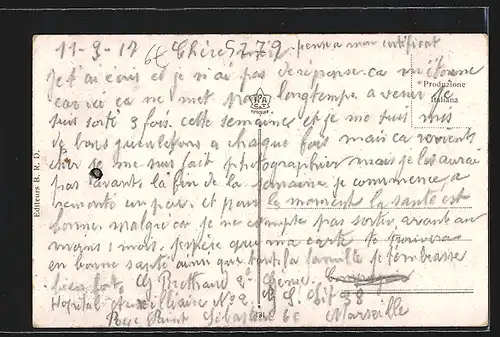 11-9-17 Chère pense a mon certificat
Je t'ai écris et je n'ai pas de réponse. ca m'étonne
car ici ca ne met pas longtemps a venir Je
suis sorti 3 fois. cette semaine et je me suis mis
de bors quelcons a chaque fois mais ca revients
cher je me suis fait photographier mais je les aurai
pas avants la fin de la semaine je commence a
remonté un peu. et pour le moment la santé est
bonne. malgré ca je ne compte pas sortir avant au
moins 1 mois. j'espère que ma carte te trouvera
en bonne santé ainsi que toute la famille je t'embrasse
bien fort. Bertrand
Hopital Auxilliaire No 2. Lit 38
Rue Saint Sébastien 60 Marseille
Produzione
Italiana
Editeurs B. R. D.